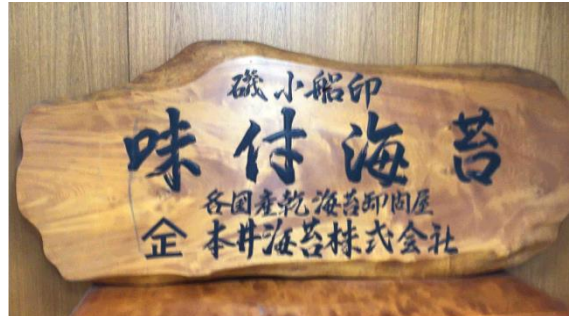 磯小船印
味付海苔
各国産乾海苔卸問屋
本井海苔株式会社